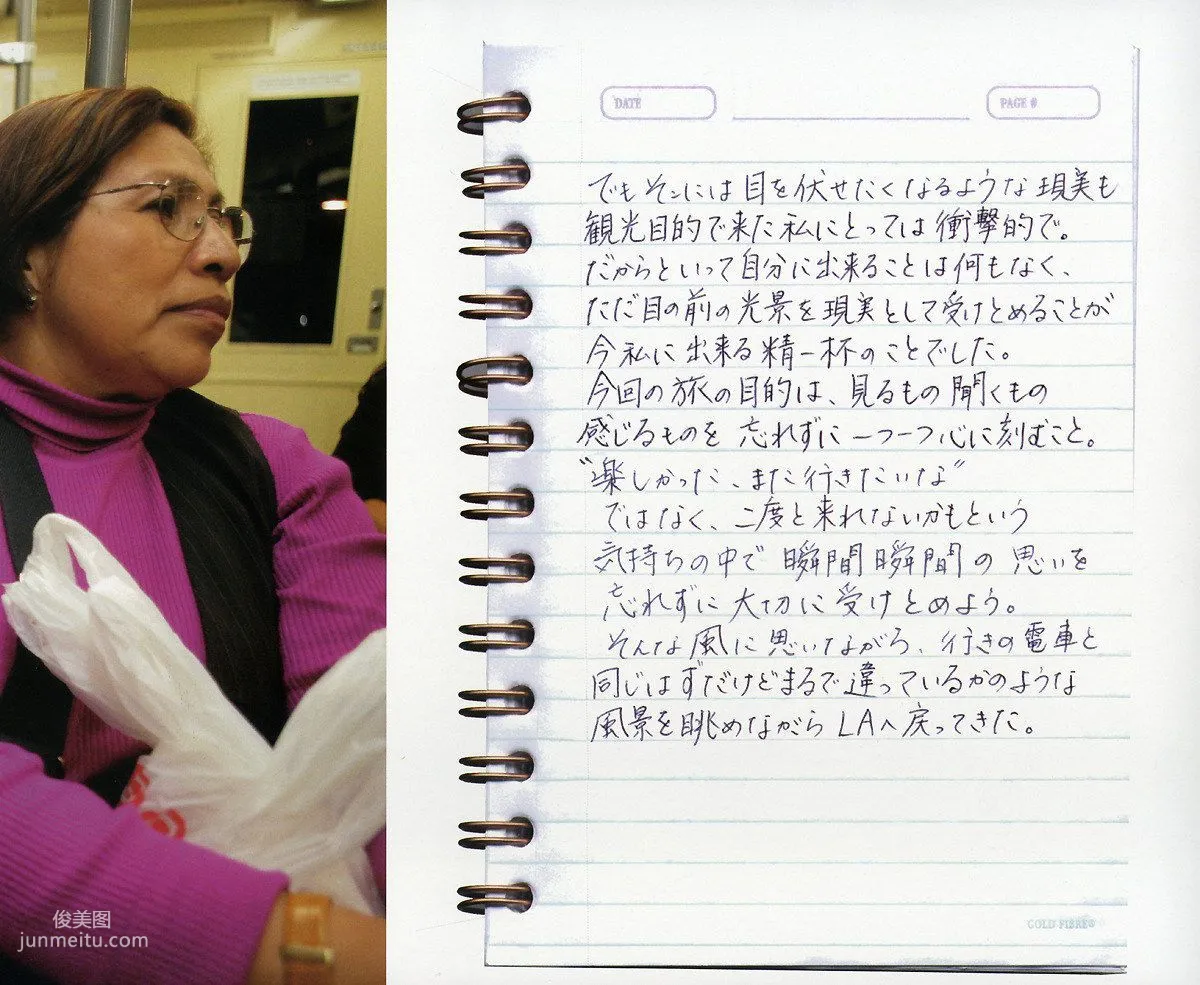 DATE
PAGE #
でもそこには目を伏せたくなるような現実も
観光目的で来た私にとっては衝撃的で。
だからといって自分に出来ることは何もなく、
ただ目の前の光景を現実として受けとめることが
今私に出来る精一杯のことでした。
今回の旅の目的は、見るもの聞くもの
感じるものを忘れずに一つ一つ心に刻むこと。
"楽しかった、また行きたいな"
ではなく、二度と来れないかもという
気持ちの中で瞬間瞬間の思いを
忘れずに大切に受けとめよう。
そんな風に思いながら、行きの電車と
同じはずだけどまるで違っているかのような
風景を眺めながらLAへ戻ってきた。
GOLD FIBRE®
俊美图
junmeitu.com